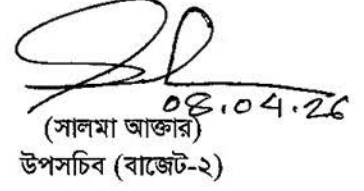 08.04.26
(সালমা আক্তার)
উপসচিব (বাজেট-২)